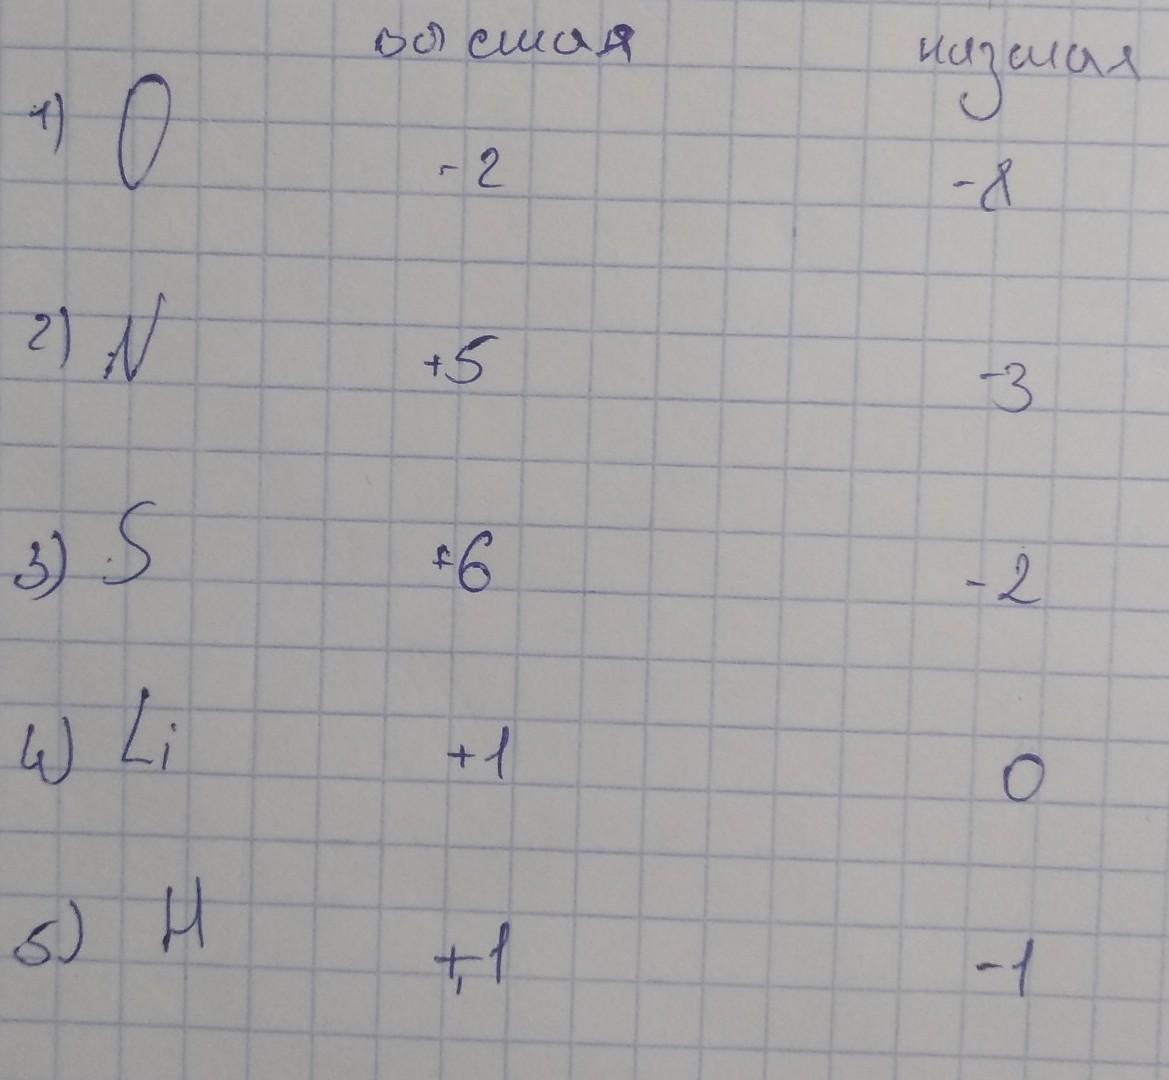 высшая низшая
1) O -2 -8
2) N +5 -3
3) S +6 -2
4) Li +1 0
5) H +1 -1